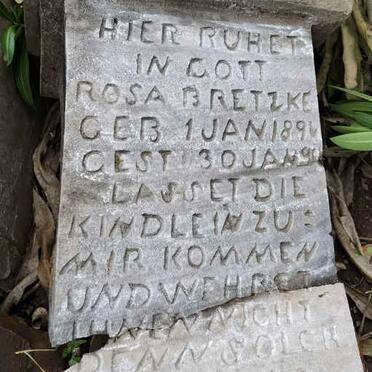 HIER RUHET
IN GOTT
ROSA BRETZKE
GEB 1 JAN
GEST 30 JAN
LASSET DIE
KINDLEIN ZU=
MIR KOMMEN
UND WEHRET
IHNEN NICHT
DENN SOLCH